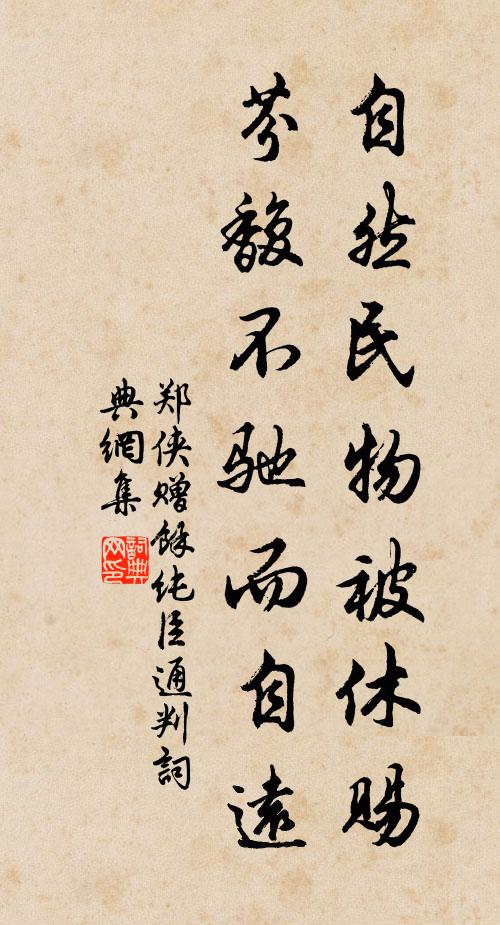 自然民物被休赐
芬馥不驰而自远
郑侠赠馀纯臣通判词
典網集
詞典网印